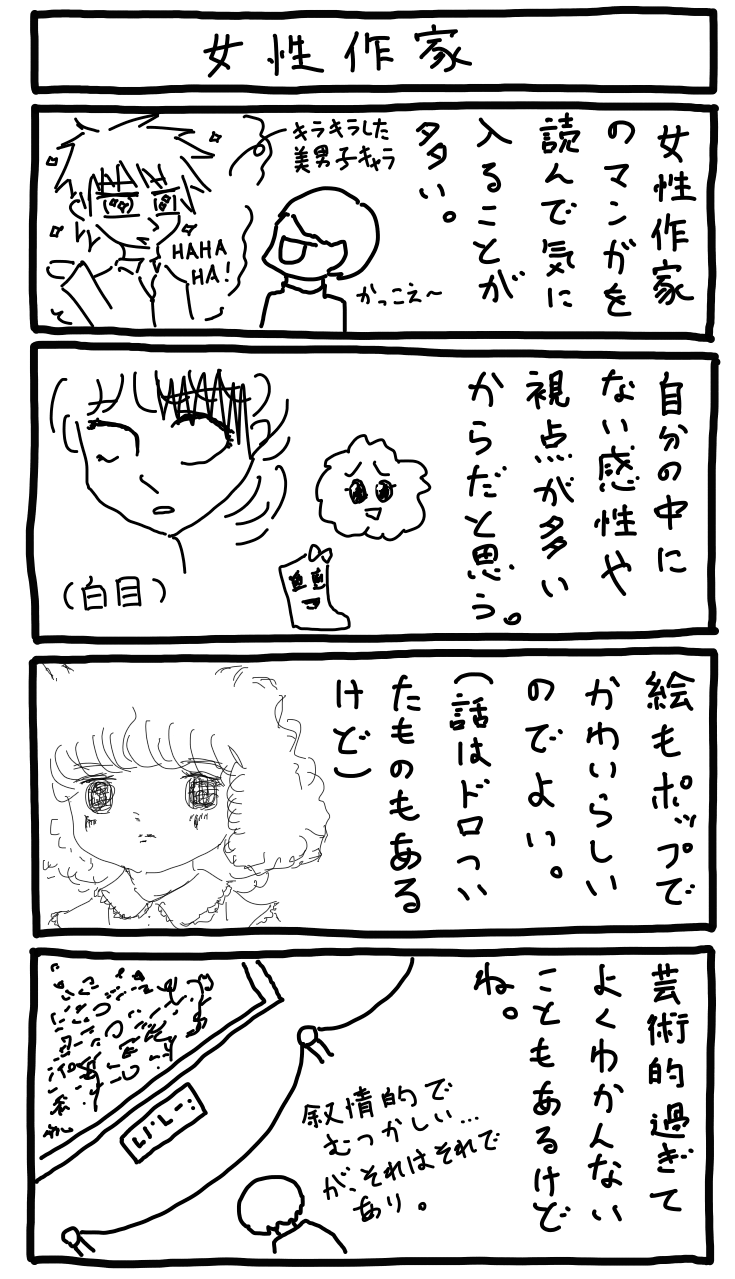 女性作家
女性作家
のマンガを
読んで気に
入ることが
多い。
キラキラした
美男子キャラ
HAHA
HA!
かっこえ〜
自分の中に
ない感性や
視点が多い
からだと思う。
(白目)
絵もポップで
かわいらしい
のでよい。
(話はドロつい
たものもある
けど)
芸術的過ぎて
よくわかんない
こともあるけど
ね。
叙情的で
むつかしい…
が、それはそれで
あり。